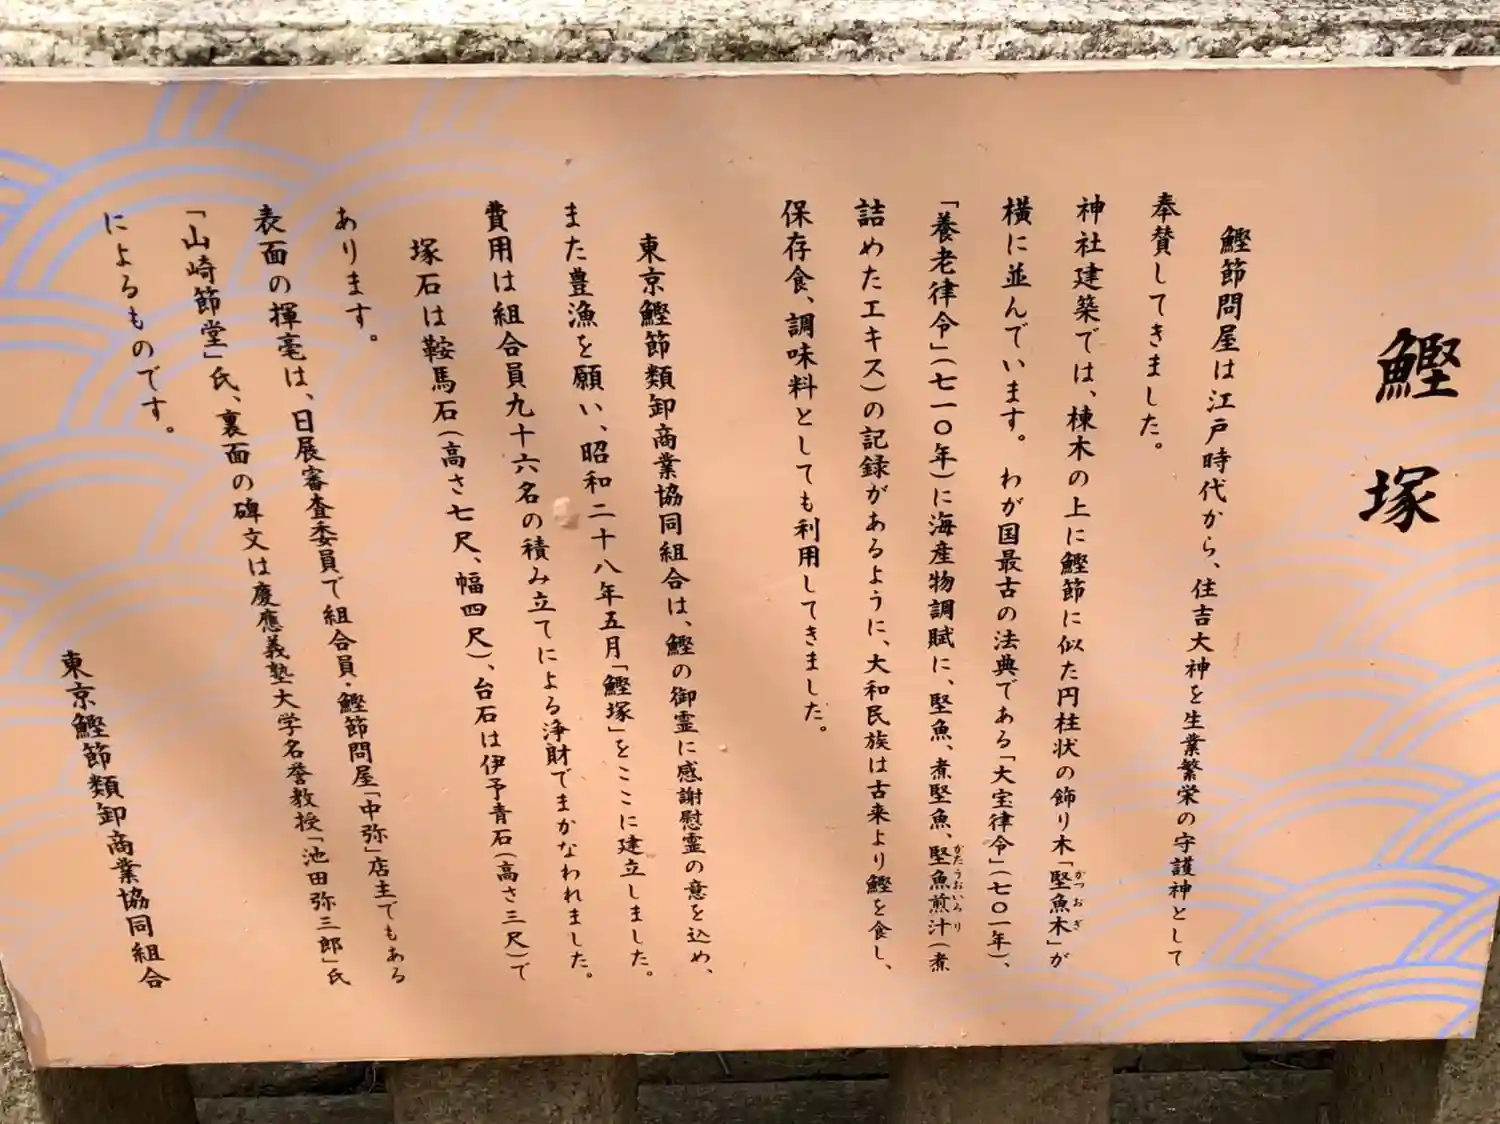 鰹塚
鰹節問屋は江戸時代から、住吉大神を生業繁栄の守護神として
奉賛してきました。
神社建築では、棟木の上に鰹節に似た円柱状の飾り木「堅魚木」が
かつおぎ
横に並んでいます。わが国最古の法典である「大宝律令」(七〇一年)、
「養老律令」(七一〇年)に海産物調賦に、堅魚、煮堅魚、堅魚煎汁(煮
がたうおいろり
詰めたエキス)の記録があるように、大和民族は古来より鰹を食し、
保存食、調味料としても利用してきました。
東京鰹節類卸商業協同組合は、鰹の御霊に感謝慰霊の意を込め、
また豊漁を願い、昭和二十八年五月「鰹塚」をここに建立しました。
費用は組合員九十六名の積み立てによる浄財でまかなわれました。
塚石は鞍馬石(高さ七尺、幅四尺)、台石は伊予青石(高さ三尺)で
あります。
表面の揮毫は、日展審査委員で組合員・鰹節問屋「中弥」店主でもある
「山崎節堂」氏、裏面の碑文は慶應義塾大学名誉教授「池田弥三郎」氏
によるものです。
東京鰹節類卸商業協同組合